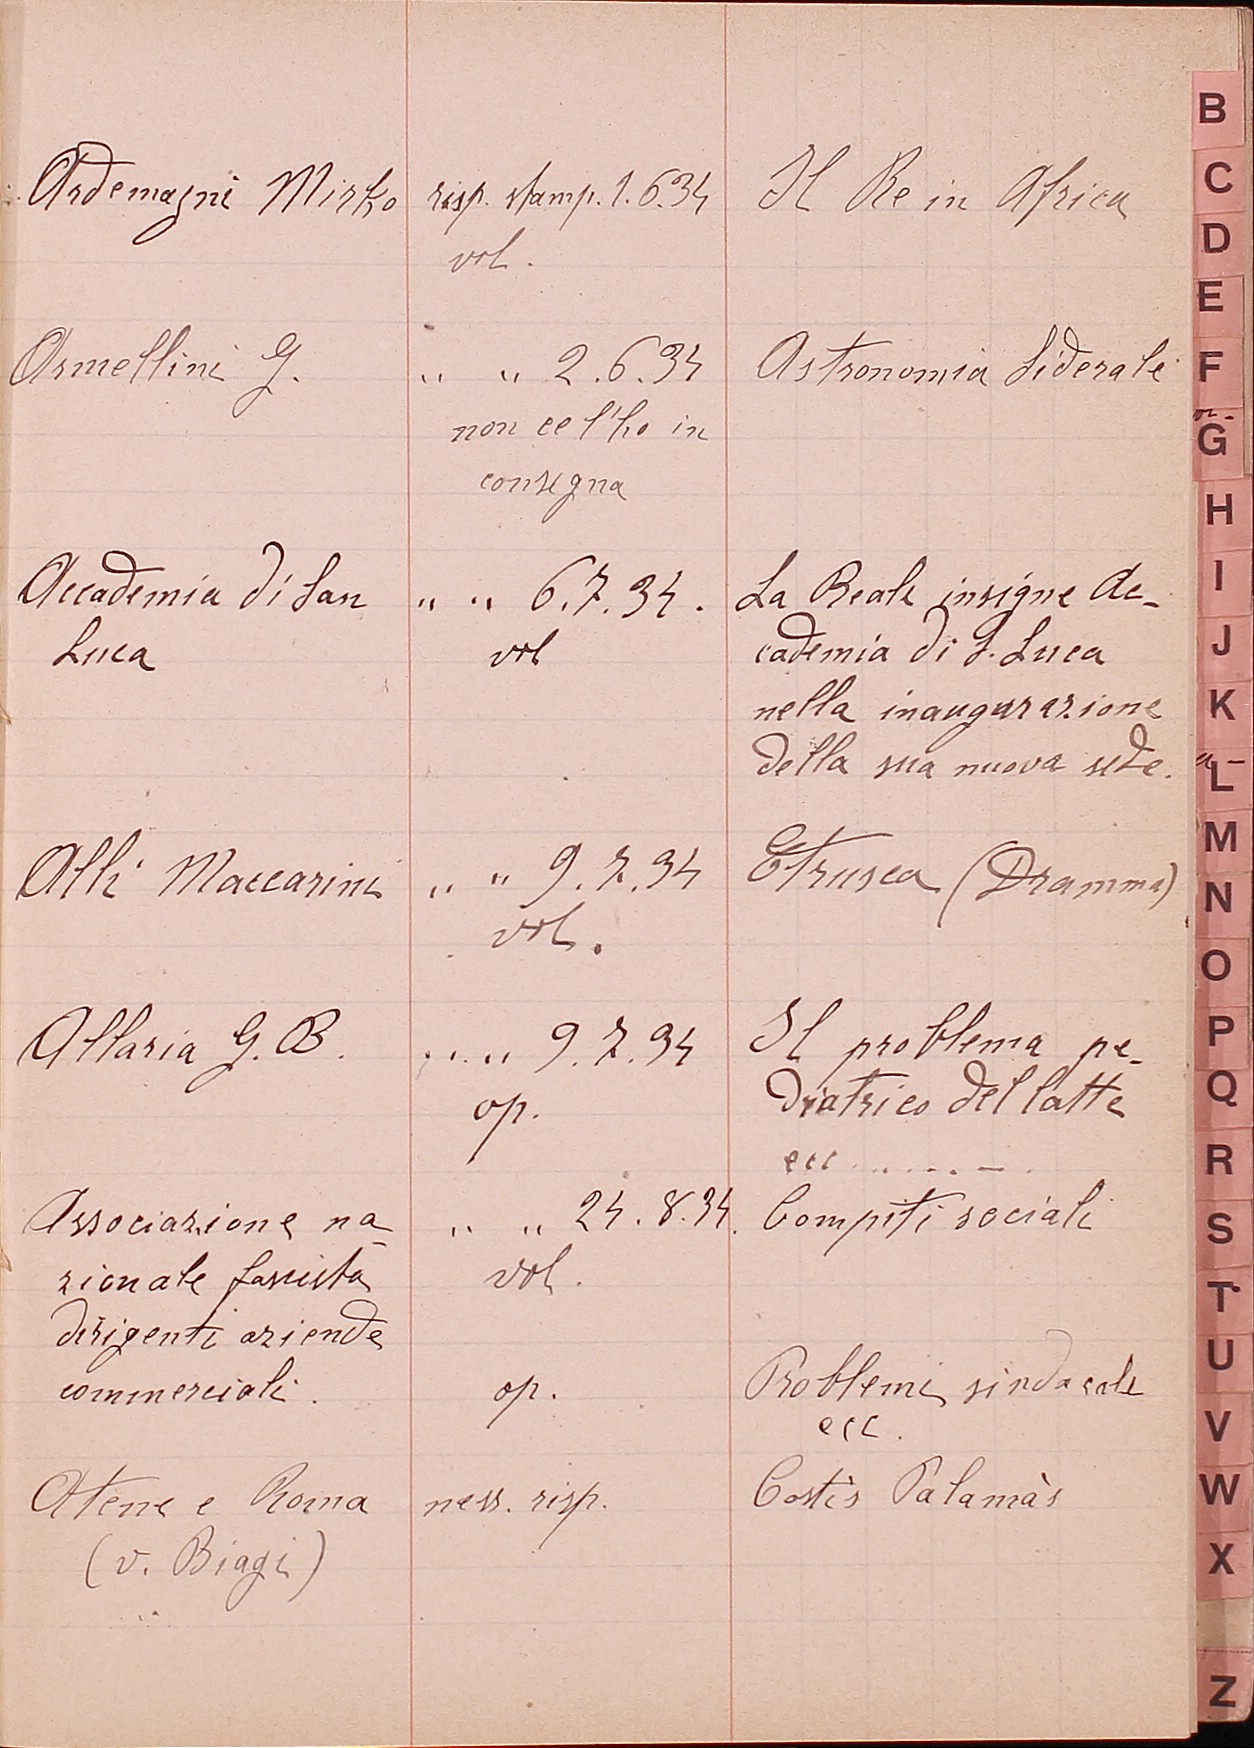 Ardemagni Mirko risp. stamp. 1.6.34 Il Re in Africa
vol.
Armellini G. " " 2.6.34 Astronomia siderale
non ce l'ho in
consegna
Accademia di San " " 6.7.34. La Reale insigne Ac-
Luca vol cademia di S. Luca
nella inaugurazione
della sua nuova sede.
Alli Maccarini " " 9.7.34 Etrusca (Dramma)
vol.
Allaria G. B. " " 9.7.34 Il problema pe-
op. diatrico del latte
ecc.......
Associazione na- " " 24.8.34. Compiti sociali
zionale fascista vol.
dirigenti aziende
commerciali. op. Problemi sindacale
ecc.
Atene e Roma ness. risp. Costìs Palamàs
(v. Biagi)
B
C
D
E
F
G
H
I
J
K
L
M
N
O
P
Q
R
S
T
U
V
W
X
Z